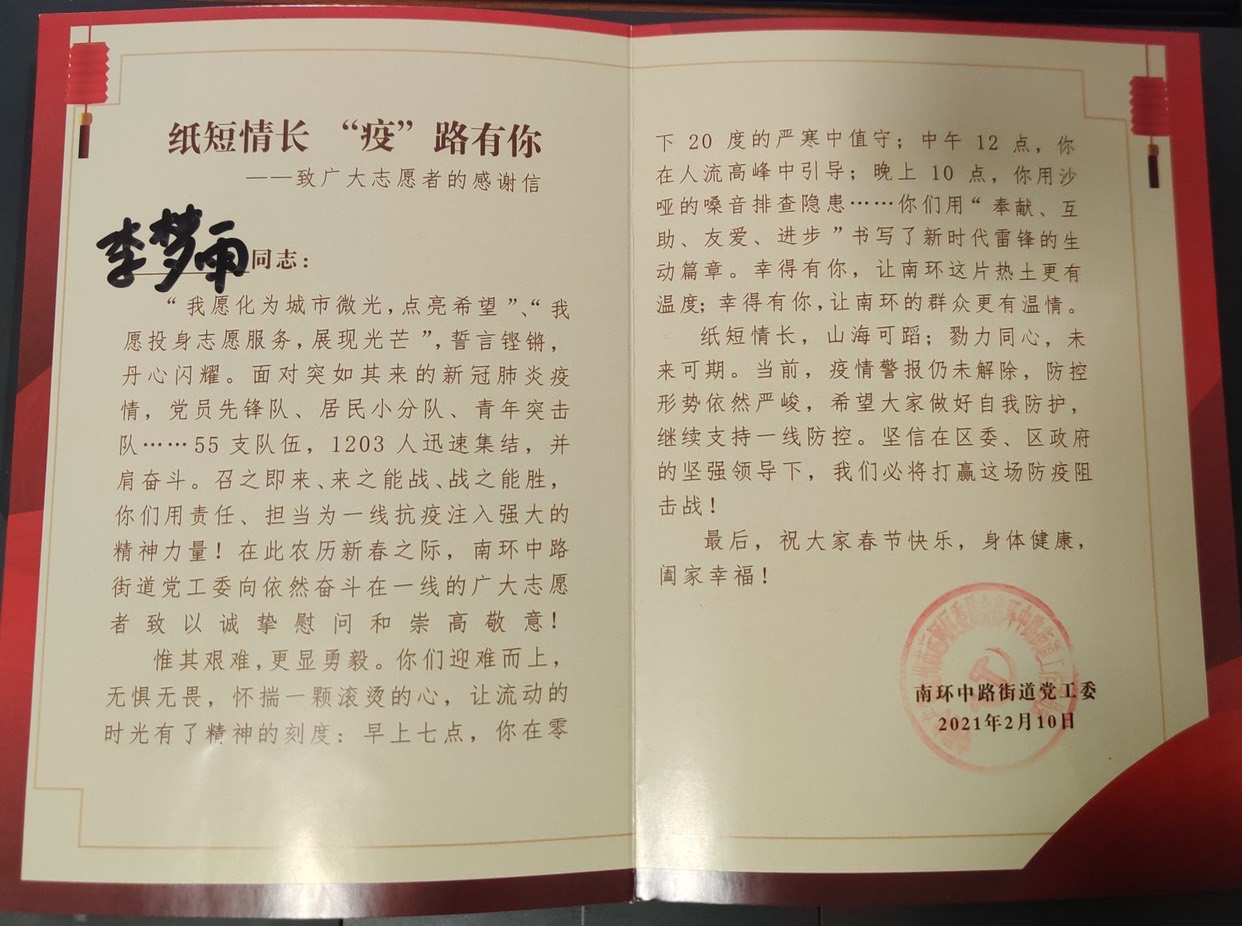 纸短情长 “疫”路有你
——致广大志愿者的感谢信
李梦雨同志：
“我愿化为城市微光，点亮希望”、“我
愿投身志愿服务，展现光芒”，誓言铿锵，
丹心闪耀。面对突如其来的新冠肺炎疫
情，党员先锋队、居民小分队、青年突击
队……55 支队伍，1203 人迅速集结，并
肩奋斗。召之即来、来之能战、战之能胜，
你们用责任、担当为一线抗疫注入强大的
精神力量！在此农历新春之际，南环中路
街道党工委向依然奋斗在一线的广大志愿
者致以诚挚慰问和崇高敬意！
惟其艰难，更显勇毅。你们迎难而上，
无惧无畏，怀揣一颗滚烫的心，让流动的
时光有了精神的刻度：早上七点，你在零
下 20 度的严寒中值守；中午 12 点，你
在人流高峰中引导；晚上 10 点，你用沙
哑的嗓音排查隐患……你们用“奉献、互
助、友爱、进步”书写了新时代雷锋的生
动篇章。幸得有你，让南环这片热土更有
温度；幸得有你，让南环的群众更有温情。
纸短情长，山海可蹈；勠力同心，未
来可期。当前，疫情警报仍未解除，防控
形势依然严峻，希望大家做好自我防护，
继续支持一线防控。坚信在区委、区政府
的坚强领导下，我们必将打赢这场防疫阻
击战！
最后，祝大家春节快乐，身体健康，
阖家幸福！
南环中路街道党工委
2021年2月10日